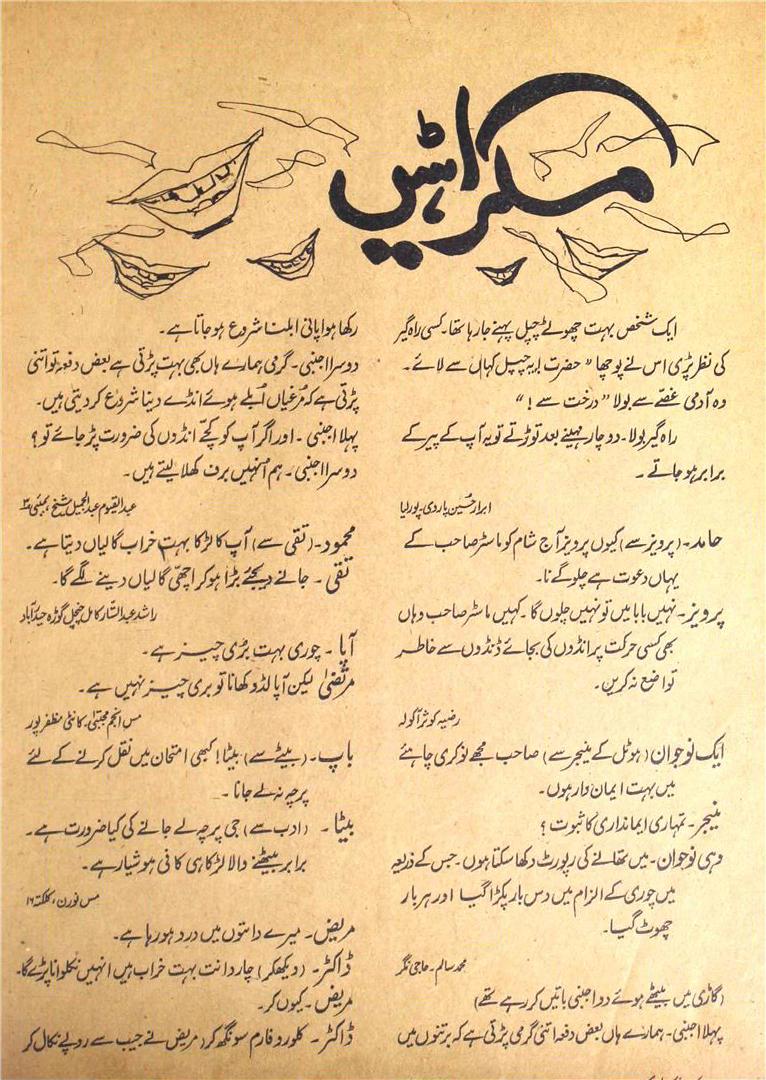 مسکراہٹیں
ایک شخص بہت چھوٹے چپل پہنے جارہا تھا۔ کسی راہ گیر
کی نظر پڑی اس نے پوچھا ” حضرت! یہ چپل کہاں سے لائے۔
وہ آدمی غصّے سے بولا ” درخت سے ! “
راہ گیر بولا۔ دو چار مہینے بعد توڑتے تو یہ آپ کے پیر کے
برابر ہوجاتے ۔
ابرار حسین پاردی۔ پورلیا
حامد۔ (پرویز سے) کیوں پرویز آج شام کو ماسٹر صاحب کے
یہاں دعوت ہے چلوگے نا۔
پرویز۔ نہیں بابا میں تو نہیں چلوں گا ۔ کہیں ماسٹر صاحب وہاں
بھی کسی حرکت پر انڈوں کی بجائے ڈنڈوں سے خاطر
تواضع نہ کریں۔
رضیہ کوثر آکولہ
ایک نوجوان (ہوٹل کے منیجر سے) صاحب مجھے نوکری چاہئے
میں بہت ایمان دار ہوں۔
منیجر۔ تمہاری ایمانداری کا ثبوت ؟
وہی نوجوان۔ میں تھانے کی رپورٹ دکھا سکتا ہوں۔ جس کے ذریعہ
میں چوری کے الزام میں دس بار پکڑا گیا اور ہر بار
چھوٹ گیا۔
محمد سالم۔ حاجی نگر
(گاڑی میں بیٹھے ہوئے دو اجنبی باتیں کررہے تھے)
پہلا اجنبی۔ ہمارے ہاں بعض دفعہ اتنی گرمی پڑتی ہے کہ برتنوں میں
رکھا ہوا پانی ابلنا شروع ہوجاتا ہے۔
دوسرا اجنبی۔ گرمی ہمارے ہاں بھی بہت پڑتی ہے بعض دفعہ تو اتنی
پڑتی ہے کہ مُرغیاں اُبلے ہوئے انڈے دینا شروع کردیتی ہیں۔
پہلا اجنبی ۔ اور اگر آپ کو کچّے انڈوں کی ضرورت پڑجائے تو ؟
دوسرا اجنبی۔ ہم اُنہیں برف کھلا لیتے ہیں۔
عبدالقیوم عبدالجمیل شیخ بمبئی
محمود۔ (تقی سے) آپ کا لڑکا بہت خراب گالیاں دیتا ہے۔
تقی ۔ جانے دیجئے بڑا ہوکر اچھّی گالیاں دینے لگے گا۔
راشد عبدالستّار کامل چنچل گوڑہ حیدرآباد
آپا ۔ چوری بہت بڑی چیز ہے۔
مرتضیٰ لیکن آپا لڈو کھانا تو بری چیز نہیں ہے۔
مس انجم مجتبیٰ۔ کانٹی مظفرپور
باپ۔ (بیٹے سے) بیٹا! کبھی امتحان میں نقل کرنے کے لئے
پرچہ نہ لے جانا ۔
بیٹا ۔ (ادب سے) جی پرچہ لے جانے کی کیا ضرورت ہے۔
برابر بیٹھنے والا لڑکا ہی کافی ہوشیار ہے۔
مس نورن، کلکتہ ۱۶
مریض۔ میرے دانتوں میں درد ہورہا ہے۔
ڈاکٹر۔ (دیکھکر) چار دانت بہت خراب ہیں انہیں نکلوانا پڑے گا۔
مریض ۔ کیوں کر۔
ڈاکٹر۔ کلوروفارم سونگھ کر (مریض نے جیب سے روپے نکال کر